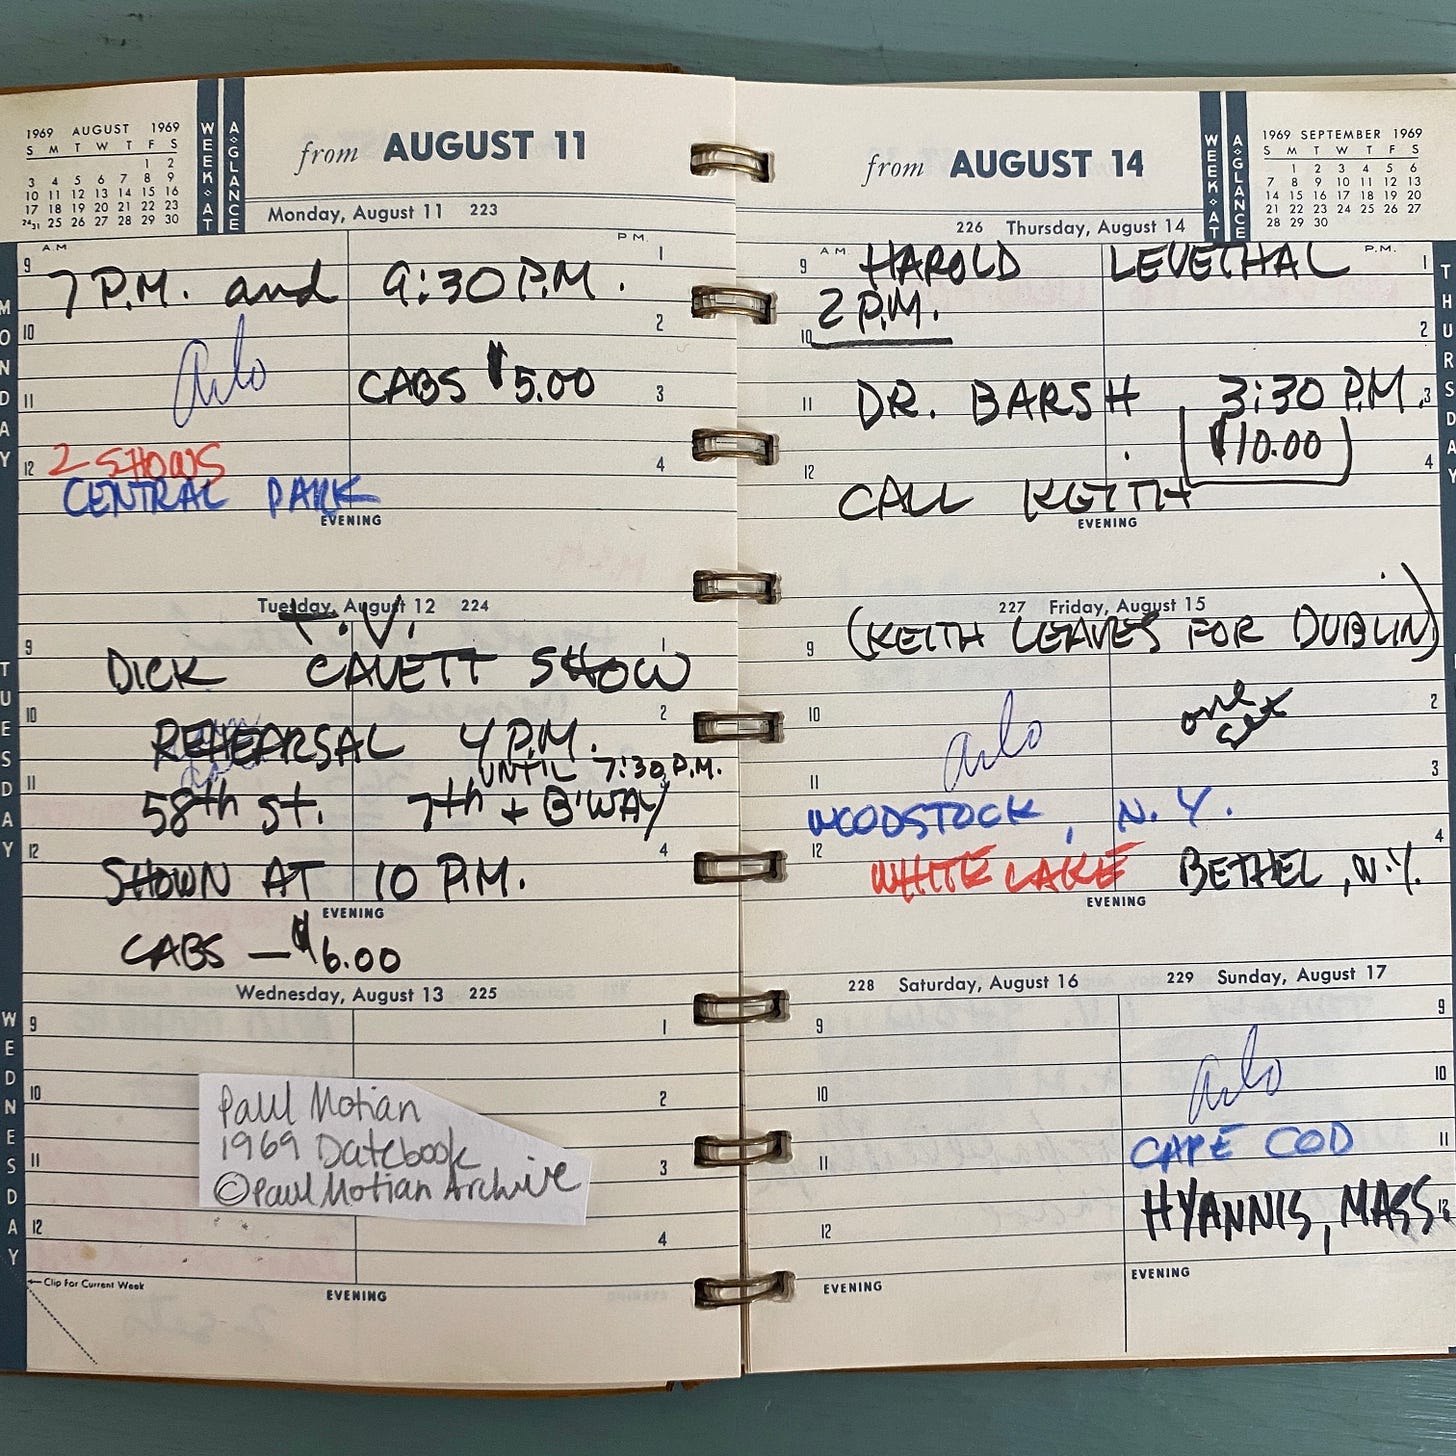 1969 AUGUST 1969
S M T W T F S
1 2
3 4 5 6 7 8 9
10 11 12 13 14 15 16
17 18 19 20 21 22 23
24/31 25 26 27 28 29 30
WEEK AT A GLANCE
from AUGUST 11
Monday, August 11 223
MONDAY
A.M. P.M.
9 1
7 P.M. and 9:30 P.M.
10 2
Arlo
CABS $5.00
11 3
2 SHOWS
12 4
CENTRAL PARK
EVENING
Tuesday, August 12 224
TUESDAY
T.V.
9 1
DICK CAVETT SHOW
10 2
REHEARSAL 4 P.M.
UNTIL 7:30 P.M.
11
58th St. 7th + B'WAY
12 4
SHOWN AT 10 P.M.
EVENING
CABS — $6.00
Wednesday, August 13 225
WEDNESDAY
9 1
10 2
Paul Motian
1969 Datebook
©Paul Motian Archive
11 3
12 4
←Clip For Current Week
EVENING
from AUGUST 14
WEEK AT A GLANCE
1969 SEPTEMBER 1969
S M T W T F S
1 2 3 4 5 6
7 8 9 10 11 12 13
14 15 16 17 18 19 20
21 22 23 24 25 26 27
28 29 30
226 Thursday, August 14
THURSDAY
A.M. P.M.
9 1
HAROLD LEVETHAL
2 P.M.
10 2
11 3
DR. BARSH 3:30 P.M.
$10.00
12 4
CALL KEITH
EVENING
227 Friday, August 15
(KEITH LEAVES FOR DUBLIN)
9
10 2
Arlo
one set
11 3
WOODSTOCK, N.Y.
12 4
WHITE LAKE BETHEL, N.Y.
EVENING
228 Saturday, August 16
9
10
11
12
EVENING
229 Sunday, August 17
9
Arlo
10
11
CAPE COD
HYANNIS, MASS.
12
EVENING